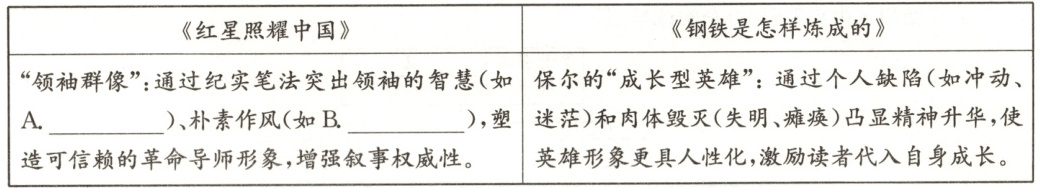 《红星照耀中国》
《钢铁是怎样炼成的》
“领袖群像”:通过纪实笔法突出领袖的智慧(如
A. __________)、朴素作风(如 B. __________),塑
造可信赖的革命导师形象,增强叙事权威性。
保尔的“成长型英雄”: 通过个人缺陷(如冲动、
迷茫)和肉体毁灭(失明、瘫痪)凸显精神升华,使
英雄形象更具人性化,激励读者代入自身成长。